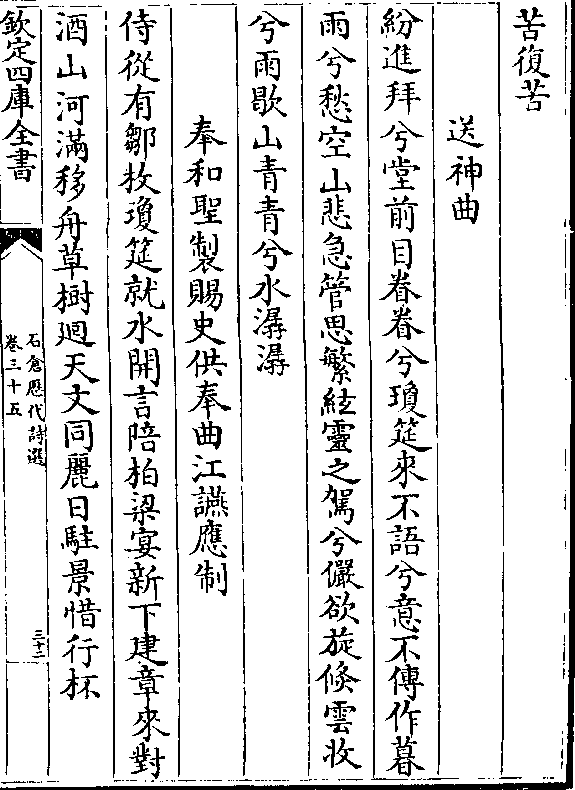 苦復苦
送神曲
紛進拜兮堂前目眷眷兮瓊筵來不語兮意不傳作暮
雨兮愁空山悲急管思繁絃靈之駕兮儼欲旋倐雲收
兮雨歇山青青兮水潺潺
奉和聖製賜史供奉曲江讌應制
侍從有鄒枚瓊筵就水開言陪柏梁宴新下建章來對
酒山河滿移舟草樹迴天文同麗日駐景惜行杯
欽定四庫全書
石倉歷代詩選
卷三十五
三十二